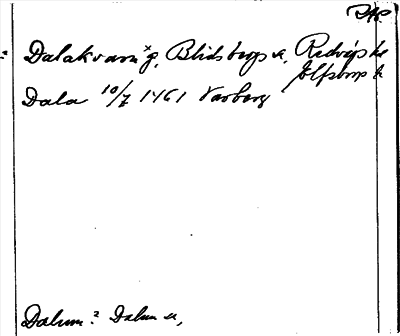 Dalakvarn × g, Blidsbergs sn, Redvägs hd
Älfsborgs l.
Dala 10/7 1461 Varberg
Dalum? Dalum sn,